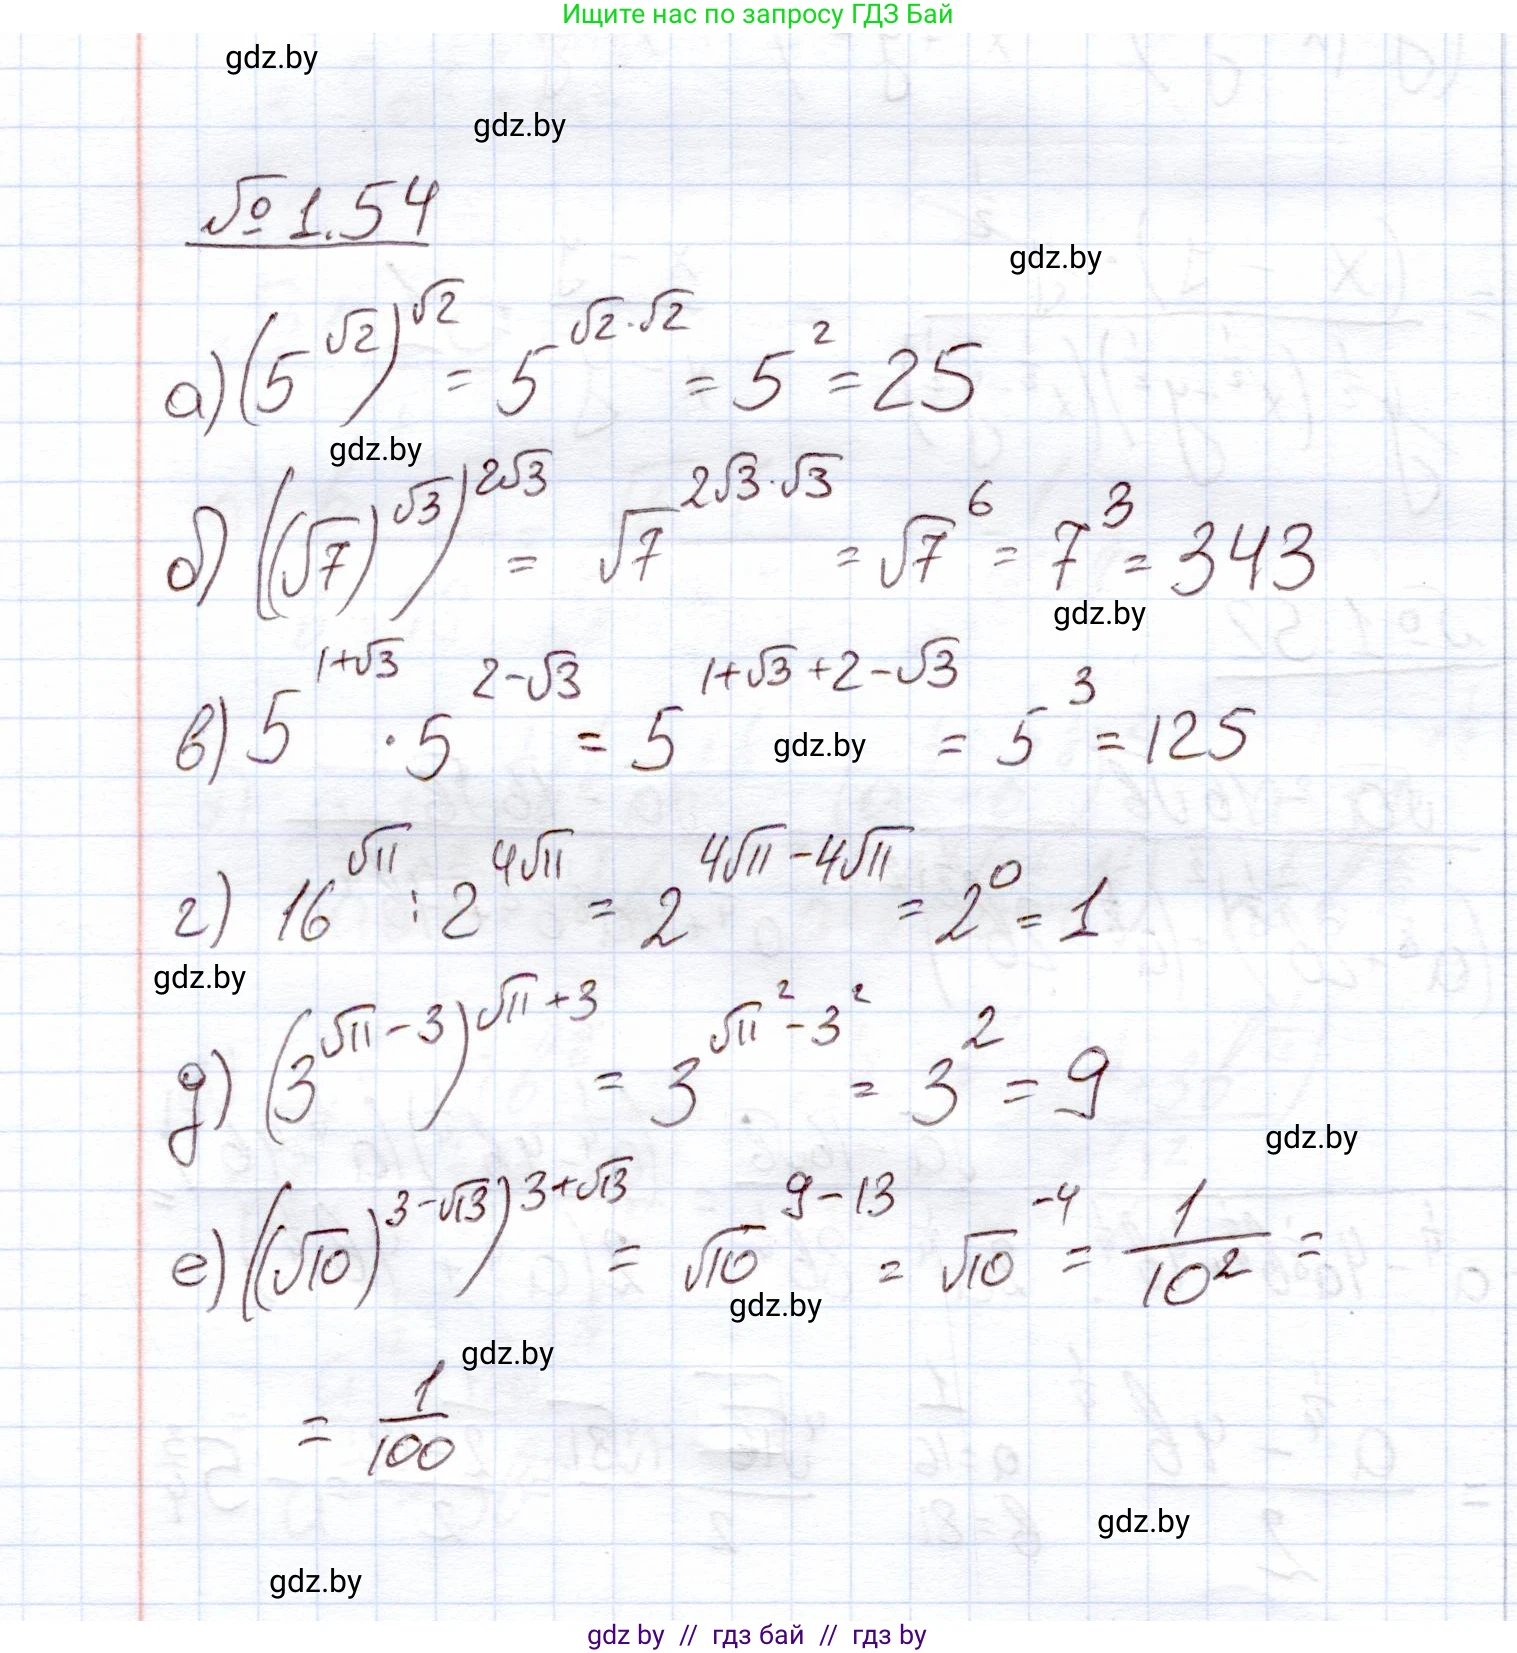 Ищите нас по запросу ГДЗ Бай
gdz.by
gdz.by
№ 1.54
gdz.by
а) (5^√2)^√2 = 5^(√2·√2) = 5^2 = 25
gdz.by
б) ((√7)^√3)^2√3 = √7^(2√3·√3) = √7^6 = 7^3 = 343
gdz.by
в) 5^(1+√3) · 5^(2-√3) = 5^(1+√3+2-√3) = 5^3 = 125
gdz.by
г) 16^√11 : 2^4√11 = 2^(4√11-4√11) = 2^0 = 1
gdz.by
д) (3^(√11-3))^(√11+3) = 3^(√11^2-3^2) = 3^2 = 9
gdz.by
е) ((√10)^(3-√13))^(3+√13) = √10^(9-13) = √10^-4 = 1/10^2 =
gdz.by
gdz.by
= 1/100
gdz.by
gdz.by
gdz by // гдз бай // гдз by